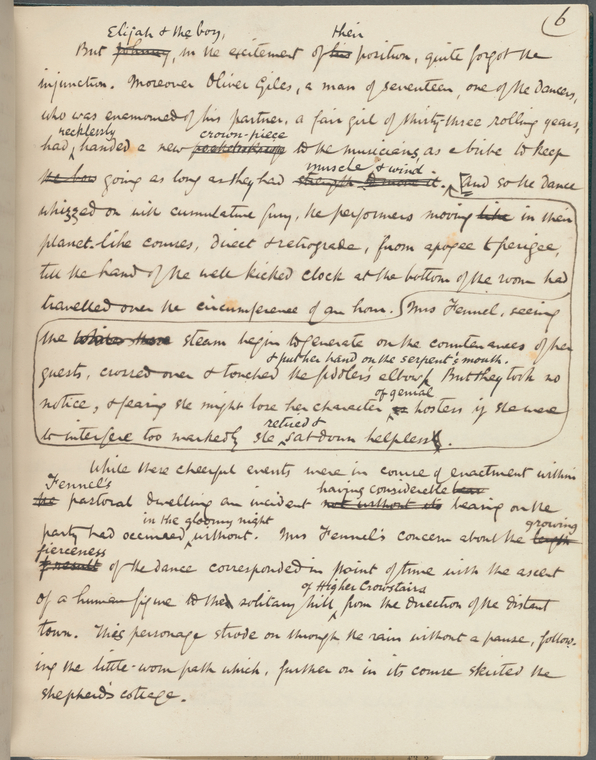 6
Elijah & the boy, their
But Johnny, in the excitement of his position, quite forgot the
injunction. Moreover Oliver Giles, a man of seventeen, one of the dancers,
who was enamoured of his partner, a fair girl of thirty-three rolling years,
recklessly crown-piece
had handed a new to the musicians, as a bribe to keep
muscle & wind
the bow going as long as they had strength to move it. And so the dance
whizzed on with cumulative fury, the performers moving like in their
planet-like courses, direct & retrograde, from apogee to perigee,
till the hand of the well kicked clock at the bottom of the room had
travelled over the circumference of an hour. Mrs Fennel, seeing
the steam begin to generate on the countenances of her
& put her hand on the serpent's mouth.
guests, crossed over & touched the fiddler's elbow But they took no
of genial
notice, & fearing she might lose her character as hostess if she were
retired &
to interfere too markedly she sat down helpless.
While these cheerful events were in course of enactment within
Fennel's having considerable
the pastoral dwelling an incident not without its bearing on the
in the gloomy night growing
party had occurred without. Mrs Fennel's concern about the length
fierceness
of the dance corresponded in point of time with the ascent
of Higher Crowstairs
of a human figure to the solitary hill from the direction of the distant
town. This personage strode on through the rain without a pause, follow-
ing the little-worn path which, further on in its course skirted the
shepherd's cottage.